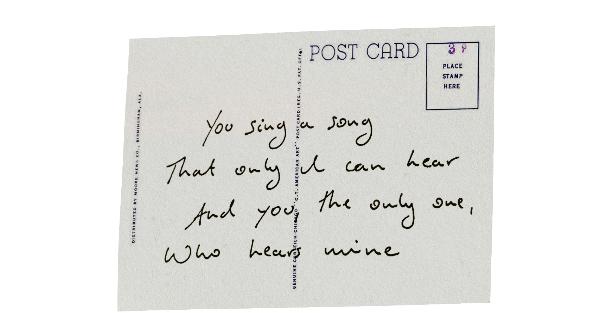 POST CARD
3 P
PLACE
STAMP
HERE
You sing a song
That only I can hear
And you the only one,
Who hears mine
DISTRIBUTED BY MOORE NEWS CO., BIRMINGHAM, ALA.
GENUINE CURTEICH-CHICAGO "C.T. AMERICAN ART" POST CARD (REG. U.S. PAT. OFF.)